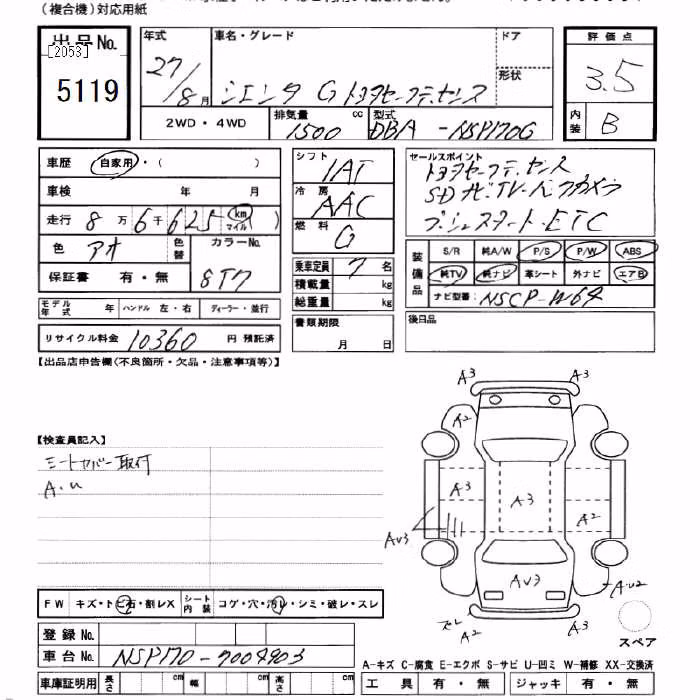 (複合機)対応用紙
出品No.
[2053]
5119
年式
27/8月
車名・グレード
シエンタ G トヨタセーフティセンス
ドア
形状
2WD・4WD
排気量
1500 cc
型式
DBA-NSP170G
評価点
3.5
内装
B
車歴 自家用・( )
車検 年 月
走行 8万6千625 km マイル )
色 アオ 色替 カラーNo.
8T7
保証書 有・無
モデル年式 年 ハンドル 左・右 ディーラー・並行
リサイクル料金 10360 円 預託済
シフト IAT
冷房 AAC
燃料 G
乗車定員 7 名
積載量 kg
総重量 kg
書類期限
月 日
セールスポイント
トヨタセーフティセンス
SDナビ・TV・バックカメラ
プッシュスタート・ETC
装備品
S/R 純A/W P/S P/W ABS
純TV 純ナビ 革シート 外ナビ エアB
ナビ型番: NSCP-W64
後日品
【出品店申告欄(不良箇所・欠品・注意事項等)】
【検査員記入】
シートカバー取付
A.U
A3
A3
A2
A3
A3
A2
AU3
AU3
A.U2
ズレ
A2
A3
スペア
FW キズ・トビ石・割レX シート内装 コゲ・穴・汚レ・シミ・破レ・スレ
登録No.
車台No. NSP170-7004903
車庫証明用 長さ cm 幅 cm 高さ cm
A-キズ C-腐食 E-エクボ S-サビ U-凹ミ W-補修 XX-交換済
工具 有・無 ジャッキ 有・無